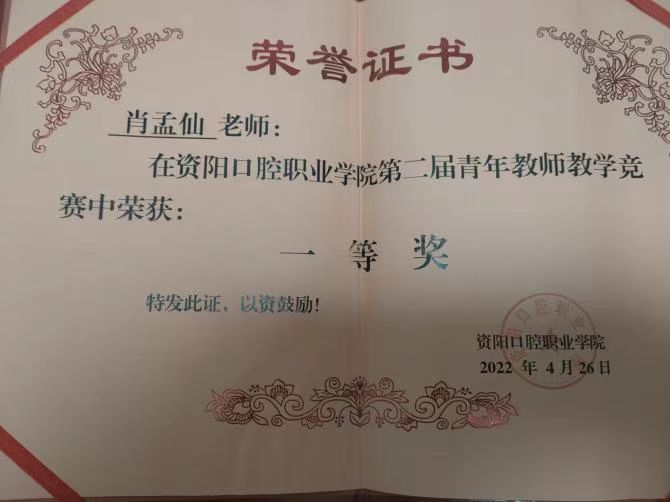 荣誉证书
肖孟仙 老师：
在资阳口腔职业学院第二届青年教师教学竞
赛中荣获：
一 等 奖
特发此证，以资鼓励！
资阳口腔职业学院
资阳口腔职业学院
2022 年 4 月 26 日